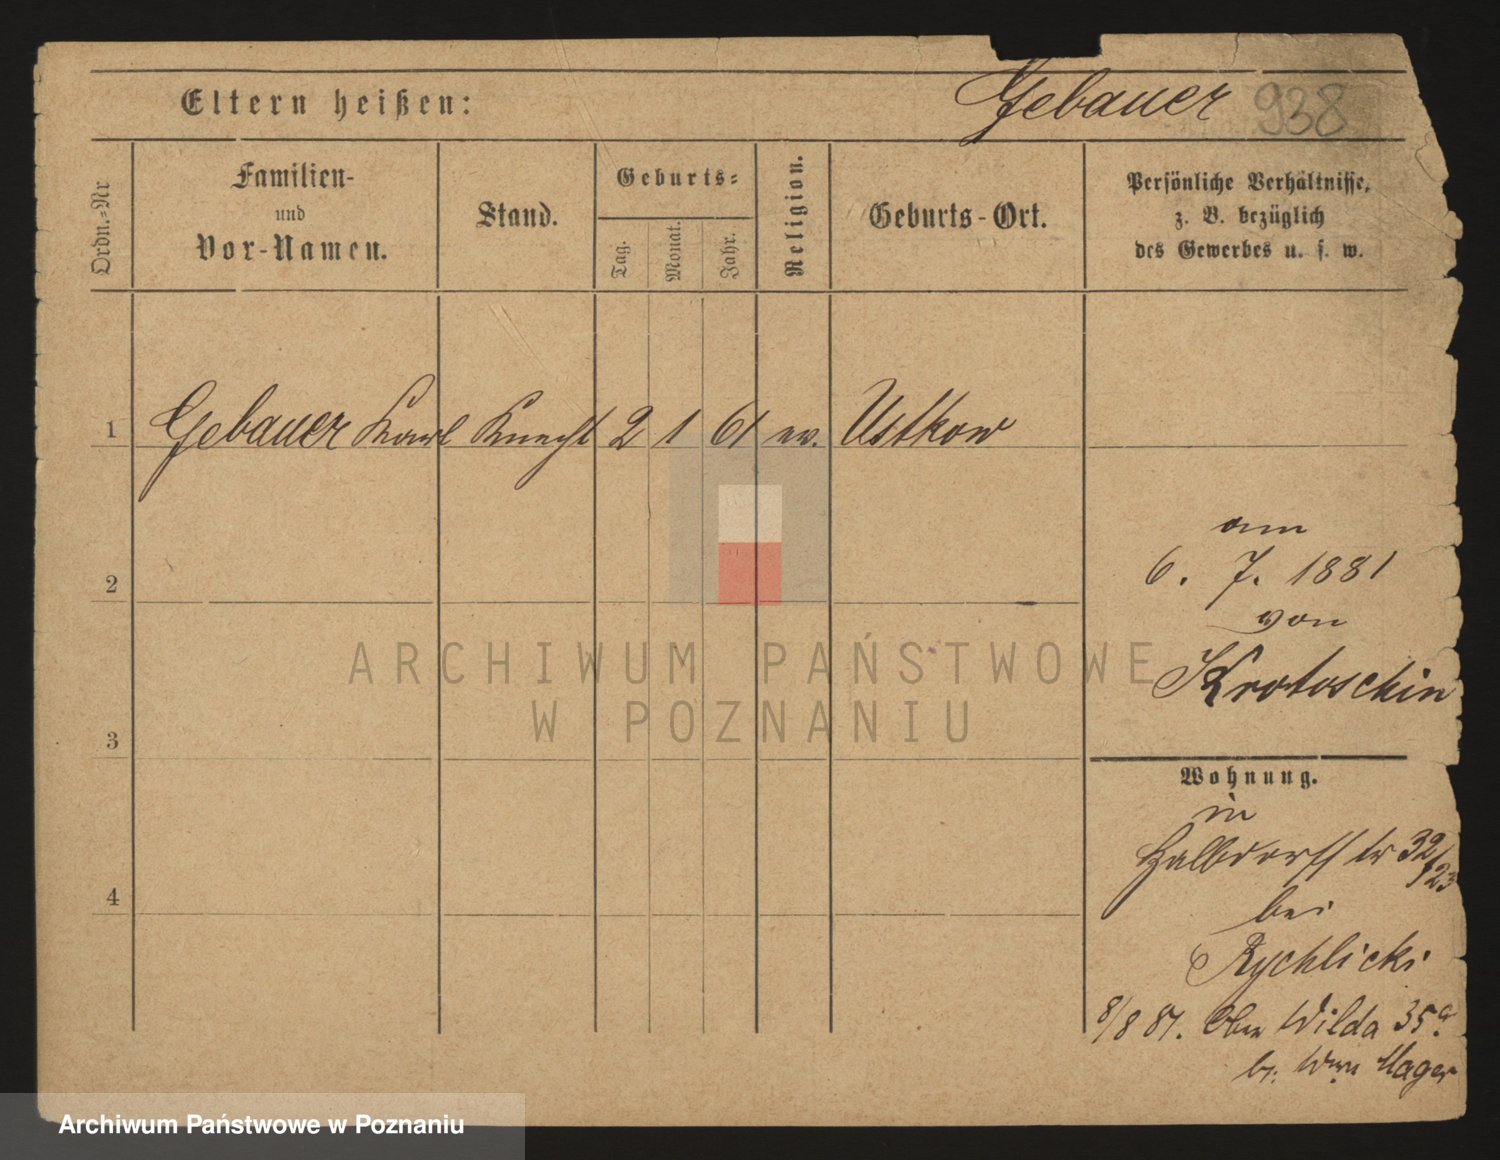 Eltern heißen: Gebauer 938
Ordn.-Nr
Familien-
und
Vor-Namen.
Stand.
Geburts-
Tag.
Monat.
Jahr.
Religion.
Geburts-Ort.
Persönliche Verhältnisse,
z. B. bezüglich
des Gewerbes u. s. w.
1 Gebauer Karl Knecht 2 1 61 ev. Ustkow
am
6. 7. 1881
von
Krotoschin
2
3
4
Wohnung.
in
Halbdorfstr 32/23
bei
Rychlicki
8/8 81. Ober Wilda 35a.
b. Wwe Mager
ARCHIWUM PAŃSTWOWE
W POZNANIU
Archiwum Państwowe w Poznaniu